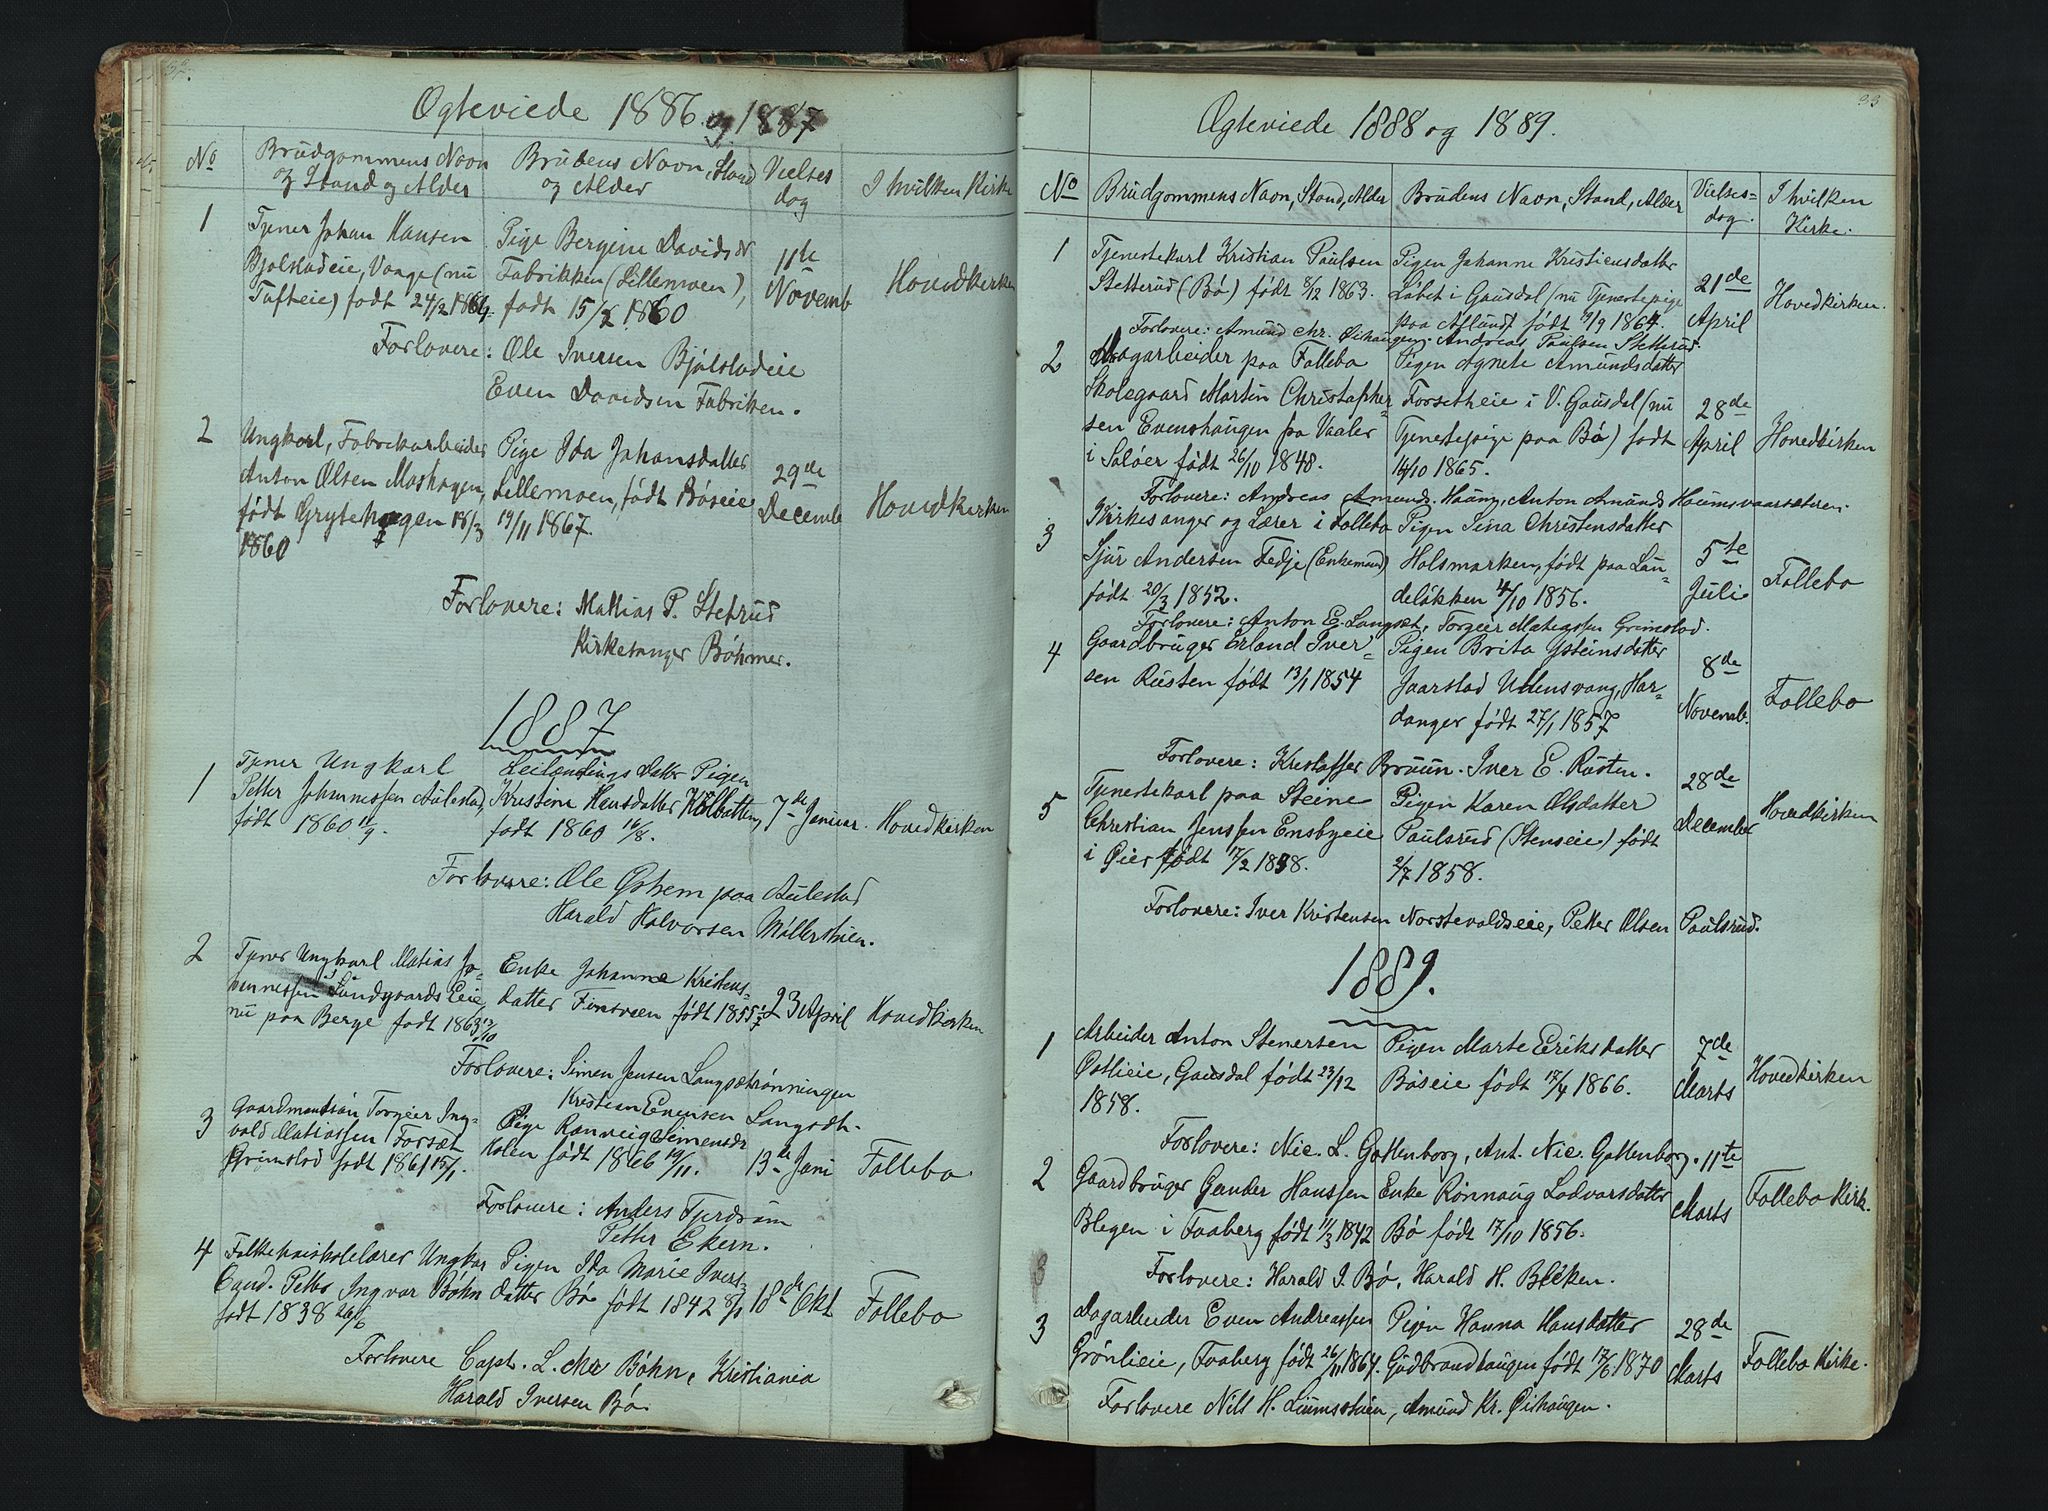 32.
Ogteviede 1886 og 1887
No
Brudgommens Navn
og Stand og Alder
Brudens Navn, Stand
og Alder
Vielses
dag
I hvilken Kirke
1
Tjener Johan Hansen
Bjølstadeie, Vaage (nu
Tofteeie) født 24/2 1864.
Pige Bergine Davidsdr
Fabrikken (Lillemoen),
født 15/2 1860
11te
Novemb
Hovedkirken
Forlovere: Ole Iversen Bjølstadeie
Even Davidsen Fabriken.
2
Ungkarl, Fabrikarbeider
Anton Olsen Moshagen,
født Grytehagen 18/3
1860
Pige Ida Johansdatter
Lillemoen, født Bøseie
19/11 1867.
29de
Decemb
Hovedkirken
Forlovere: Mattias P. Stetrud
Kirkesanger Bøhmer.
1887
1
Tjener Ungkarl
Petter Johannessen Aulestad,
født 1860 11/9.
Leilændings Datter Pigen
Kristine Hansdatter Kolbotten,
født 1860 16/8.
7de Januar.
Hovedkirken
Forlovere: Ole Østhem paa Aulestad
Harald Halvorsen Møllerstuen.
2
Tjener Ungkarl Matias Jo-
hannessen Sundgaards Eie
nu paa Berge født 1863 13/10
Enke Johanne Kristens-
datter Finsveen født 1855 2/7
23 April
Hovedkirken
Forlovere: Simen Jensen Langsetrønningen
Kristian Evensen Langsæth.
3
Gaardmandsøn Torgeir Ing-
vald Matiassen Forsæt
Grimstad født 1861 15/1.
Pige Ranveig Simensdr
Kolen født 1866 19/11.
13de Juni
Follebo
Forlovere: Anders Fjerdrum
Petter Ekern.
4
Folkehøiskolelærer Ungkar
Cand. Petter Ingvar Bøhn
født 1838 26/6
Pigen Ida Marie Ivers-
datter Bø født 1842 8/1
18de Okt
Follebo
Forlovere Capt. L. Chr Bøhn, Kristiania
Harald Iversen Bø.
33
Ægteviede 1888 og 1889.
No
Brudgommens Navn, Stand, Alder
Brudens Navn, Stand, Alder
Vielses-
dag.
I hvilken
Kirke.
1
Tjenestekarl Kristian Paulsen
Stetterud (Bø) født 8/12 1863.
Pigen Johanne Kristiensdatter
Løbet i Gausdal (nu Tjenestepige
paa Aflund) født 19/9 1864.
21de
April
Hovedkirken.
Forlovere: Amund Chr. Øihaugen. Andreas Paulsen Stetterud.
2
Dagarbeider paa Follebo
Skolegaard Martin Christopher-
sen Evenshaugen fra Vaaler
i Soløer født 26/10 1848.
Pigen Agnete Amundsdatter
Forsetheie i V. Gausdal (nu
Tjenestepige paa Bø) født
14/10 1865.
28de
April
Hovedkirken
Forlovere: Andreas Amunds. Haum, Anton Amunds Haumsvaarsæteren.
3
Kirkesanger og Lærer i Follebo
Sjur Andersen Fedje (Enkemand)
født 20/3 1852.
Pigen Sina Christensdatter
Holsmarken, født paa Lun-
deløkken 4/10 1856.
5te
Juli
Follebo
Forlovere: Anton E. Langset, Torgeir Matiassen Grimstad.
4
Gaardbruger Erland Iver-
sen Rusten født 13/1 1854
Pigen Brita Ysteinsdatter
Jaarstad Ullensvang, Har-
danger født 27/1 1857
8de
Novemb.
Follebo
Forlovere: Kristoffer Bruun. Iver E. Rusten.
5
Tjenestekarl paa Steine
Christian Jenssen Ensbyeie
i Øier født 17/2 1858.
Pigen Karen Olsdatter
Paulsrud (Stenseie) født
2/7 1858.
28de
December
Hovedkirken
Forlovere: Iver Kristensen Norstevoldseie, Petter Olsen Paulsrud.
1889.
1
Arbeider Anton Stenersen
Østlieie, Gausdal født 23/12
1858.
Pigen Marte Eriksdatter
Bøseie født 17/4 1866.
7de
Marts
Hovedkirken
Forlovere: Nic. L. Gottenborg, Ant. Nic. Gottenborg.
2
Gaardbruger Gunder Hanssen
Blegen i Faaberg født 11/3 1842
Enke Rønnaug Lodvarsdatter
Bø født 17/10 1856.
11te
Marts
Follebo Kirk.
Forlovere: Harald I. Bø, Harald H. Bleken.
3
3
Dagarbeider Even Andreassen
Grønlieie, Faaberg født 26/11 1864.
Pigen Hanna Hansdatter
Gudbrandhaugen født 17/6 1870
28de
Marts
Follebo Kirke.
Forlovere Nils H. Liumsstuen, Amund Kr. Øihaugen.